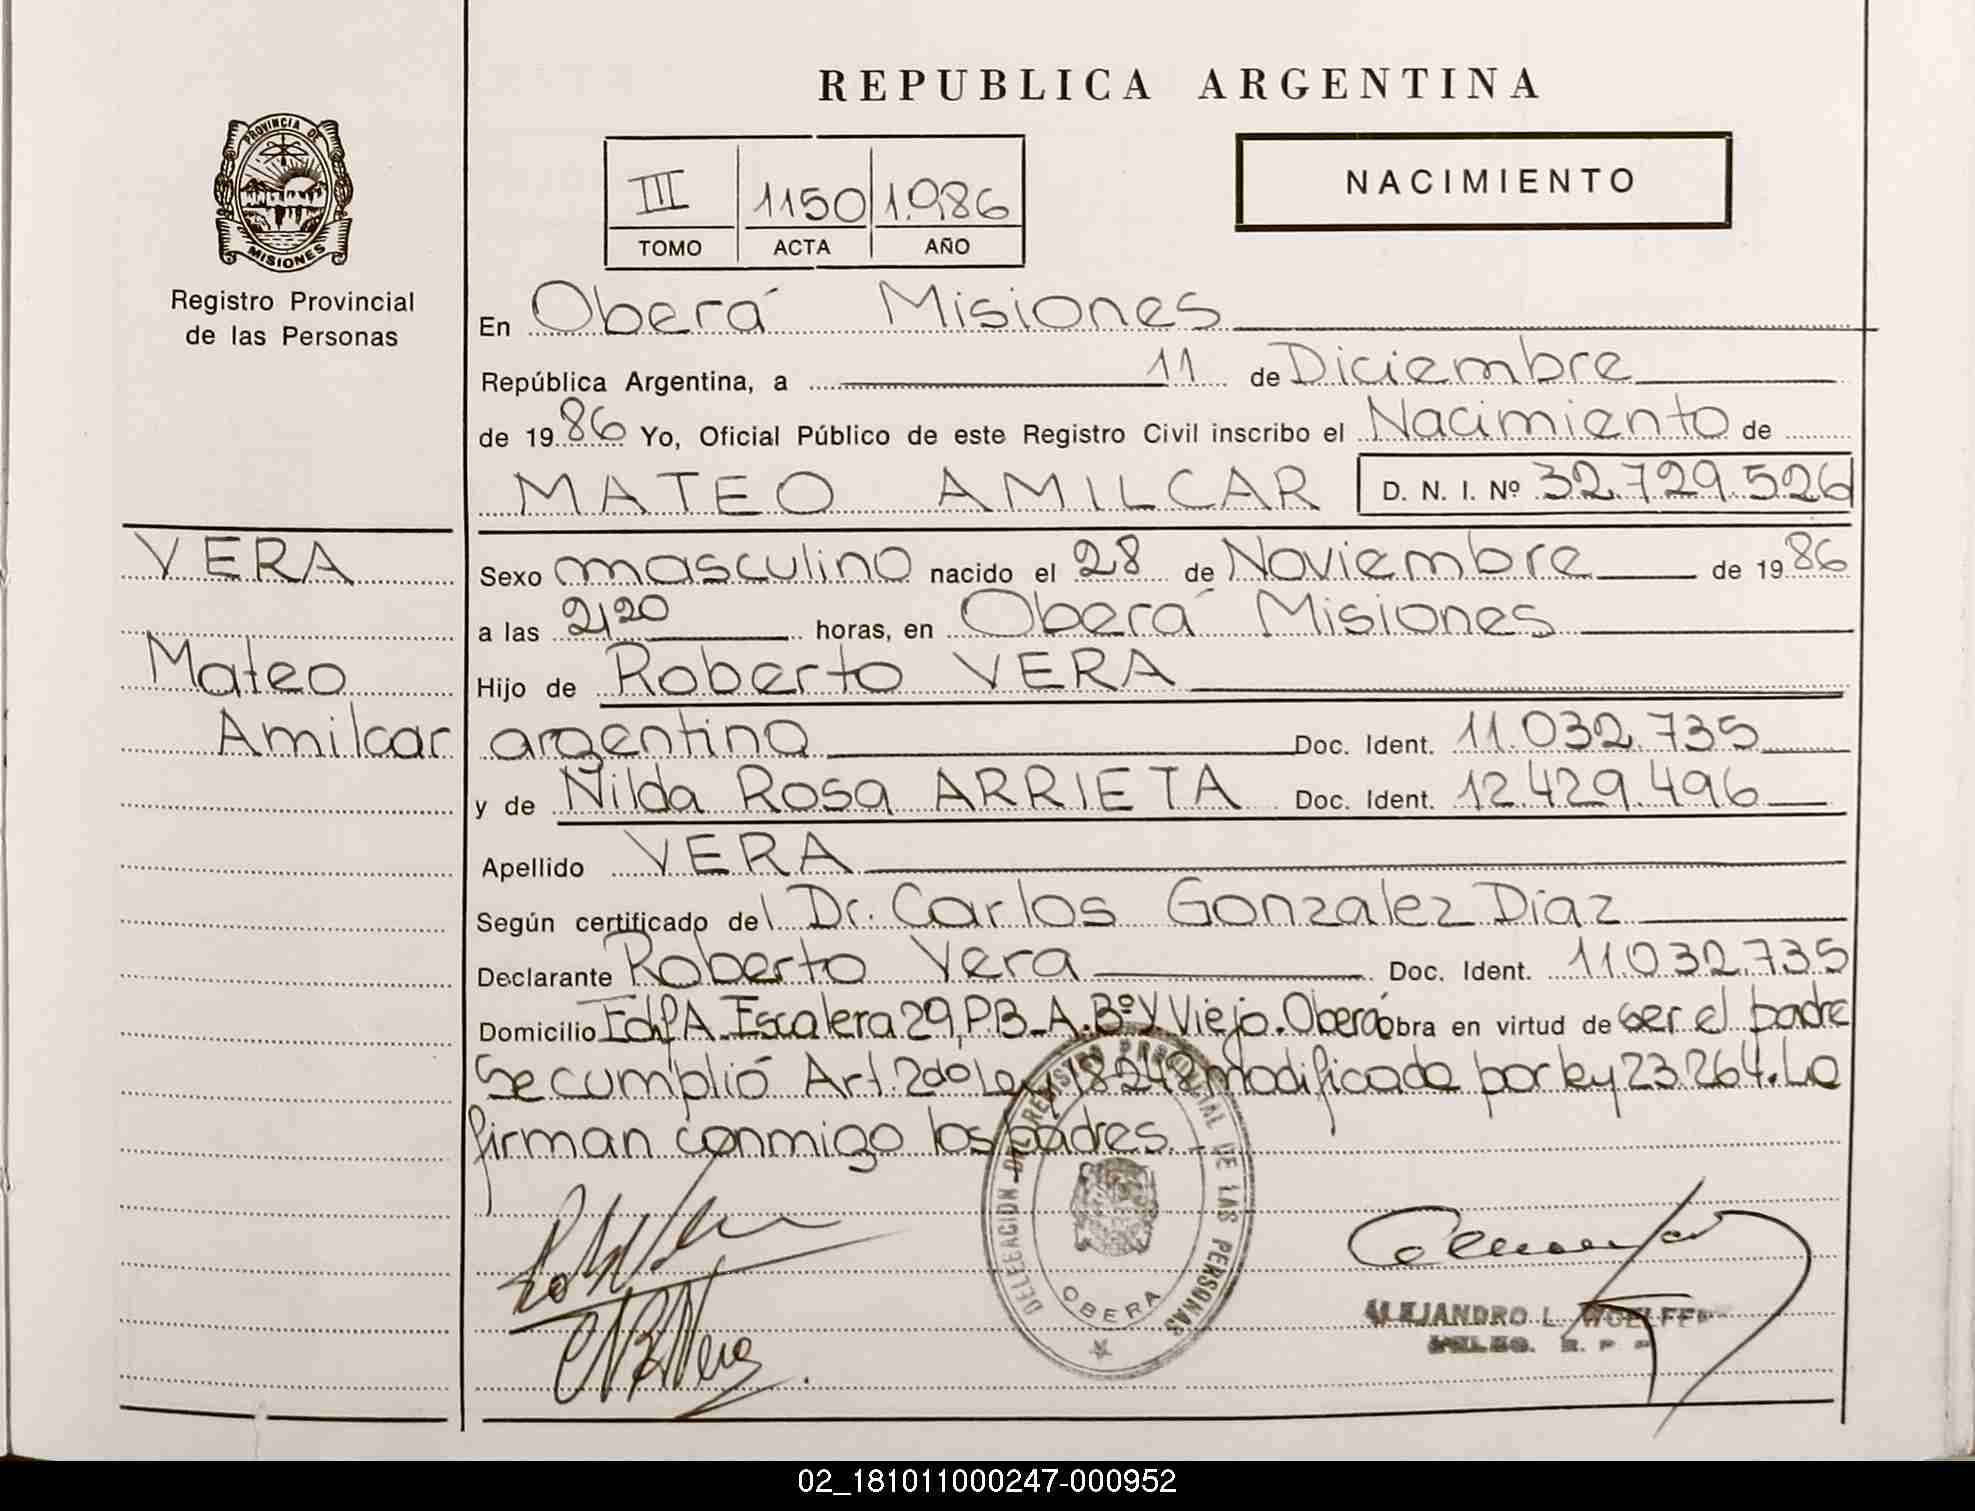 REPUBLICA ARGENTINA
PROVINCIA DE
MISIONES
Registro Provincial
de las Personas
III 1150 1.986
TOMO ACTA AÑO
NACIMIENTO
En Oberá Misiones
República Argentina, a 11 de Diciembre
de 1986 Yo, Oficial Público de este Registro Civil inscribo el Nacimiento de
MATEO AMILCAR D. N. I. Nº 32.729.526
VERA
Mateo
Amilcar
Sexo masculino nacido el 28 de Noviembre de 1986
a las 2,20 horas, en Oberá Misiones
Hijo de Roberto VERA
argentina Doc. Ident. 11.032.735
y de Nilda Rosa ARRIETA Doc. Ident. 12.429.496
Apellido VERA
Según certificado del Dr. Carlos Gonzalez Diaz
Declarante Roberto Vera Doc. Ident. 11032.735
Domicilio Edif A Escalera 29, P.B-A. Bº Y Viejo. Oberá obra en virtud de ser el padre
Se cumplió Art. 2do Ley 18248 modificada por ley 23.264. Lo
firman conmigo los padres.
DELEGACION DEL REGISTRO PROVINCIAL DE LAS PERSONAS
OBERA
ALEJANDRO L.
02_181011000247-000952